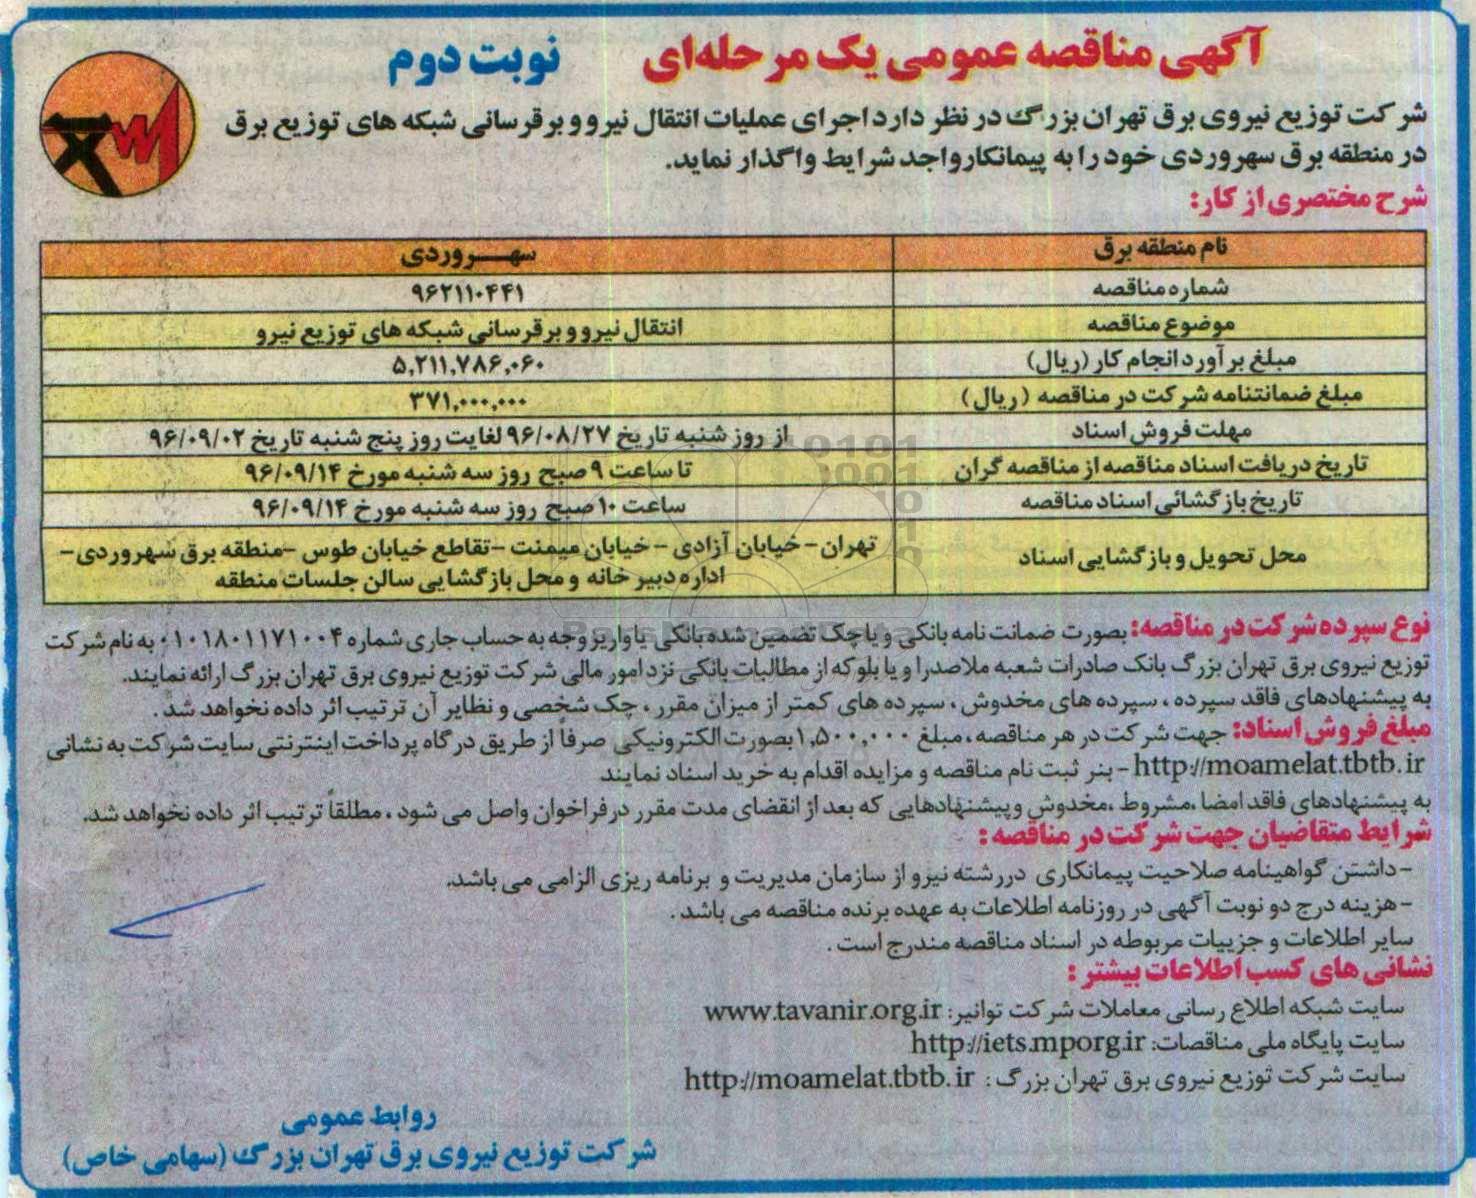 آگهی مناقصه عمومی یک مرحله‌ای نوبت دوم
شرکت توزیع نیروی برق تهران بزرگ در نظر دارد اجرای عملیات انتقال نیرو و برقرسانی شبکه های توزیع برق
در منطقه برق سهروردی خود را به پیمانکار واجد شرایط واگذار نماید.
شرح مختصری از کار:
نام منطقه برق سهروردی
شماره مناقصه ۹۶۲۱۱۰۴۴۱
موضوع مناقصه انتقال نیرو و برقرسانی شبکه های توزیع نیرو
مبلغ برآورد انجام کار (ریال) ۵,۲۱۱,۷۸۶,۰۶۰
مبلغ ضمانتنامه شرکت در مناقصه (ریال) ۳۷۱,۰۰۰,۰۰۰
مهلت فروش اسناد از روز شنبه تاریخ ۹۶/۰۸/۲۷ لغایت روز پنج شنبه تاریخ ۹۶/۰۹/۰۲
تاریخ دریافت اسناد مناقصه از مناقصه گران تا ساعت ۹ صبح روز سه شنبه مورخ ۹۶/۰۹/۱۴
تاریخ بازگشائی اسناد مناقصه ساعت ۱۰ صبح روز سه شنبه مورخ ۹۶/۰۹/۱۴
محل تحویل و بازگشایی اسناد تهران - خیابان آزادی - خیابان میمنت - تقاطع خیابان طوس - منطقه برق سهروردی -
اداره دبیرخانه و محل بازگشایی سالن جلسات منطقه
نوع سپرده شرکت در مناقصه: بصورت ضمانت نامه بانکی و یا چک تضمین شده بانکی یا واریز وجه به حساب جاری شماره ۰۱۰۱۸۰۱۱۷۱۰۰۴ به نام شرکت
توزیع نیروی برق تهران بزرگ بانک صادرات شعبه ملاصدرا و یا بلوکه از مطالبات بانکی نزد امور مالی شرکت توزیع نیروی برق تهران بزرگ ارائه نمایند.
به پیشنهادهای فاقد سپرده ، سپرده های مخدوش ، سپرده های کمتر از میزان مقرر ، چک شخصی و نظایر آن ترتیب اثر داده نخواهد شد .
مبلغ فروش اسناد: جهت شرکت در هر مناقصه ، مبلغ ۱,۵۰۰,۰۰۰ بصورت الکترونیکی صرفاً از طریق درگاه پرداخت اینترنتی سایت شرکت به نشانی
http://moamelat.tbtb.ir - بنر ثبت نام مناقصه و مزایده اقدام به خرید اسناد نمایند
به پیشنهادهای فاقد امضا ،مشروط ،مخدوش و پیشنهادهایی که بعد از انقضای مدت مقرر در فراخوان واصل می شود ، مطلقاً ترتیب اثر داده نخواهد شد.
شرایط متقاضیان جهت شرکت در مناقصه :
- داشتن گواهینامه صلاحیت پیمانکاری در رشته نیرو از سازمان مدیریت و برنامه ریزی الزامی می باشد.
- هزینه درج دو نوبت آگهی در روزنامه اطلاعات به عهده برنده مناقصه می باشد .
سایر اطلاعات و جزییات مربوطه در اسناد مناقصه مندرج است .
نشانی های کسب اطلاعات بیشتر :
سایت شبکه اطلاع رسانی معاملات شرکت توانیر: www.tavanir.org.ir
سایت پایگاه ملی مناقصات: http://iets.mporg.ir
سایت شرکت توزیع نیروی برق تهران بزرگ : http://moamelat.tbtb.ir
روابط عمومی
شرکت توزیع نیروی برق تهران بزرگ (سهامی خاص)